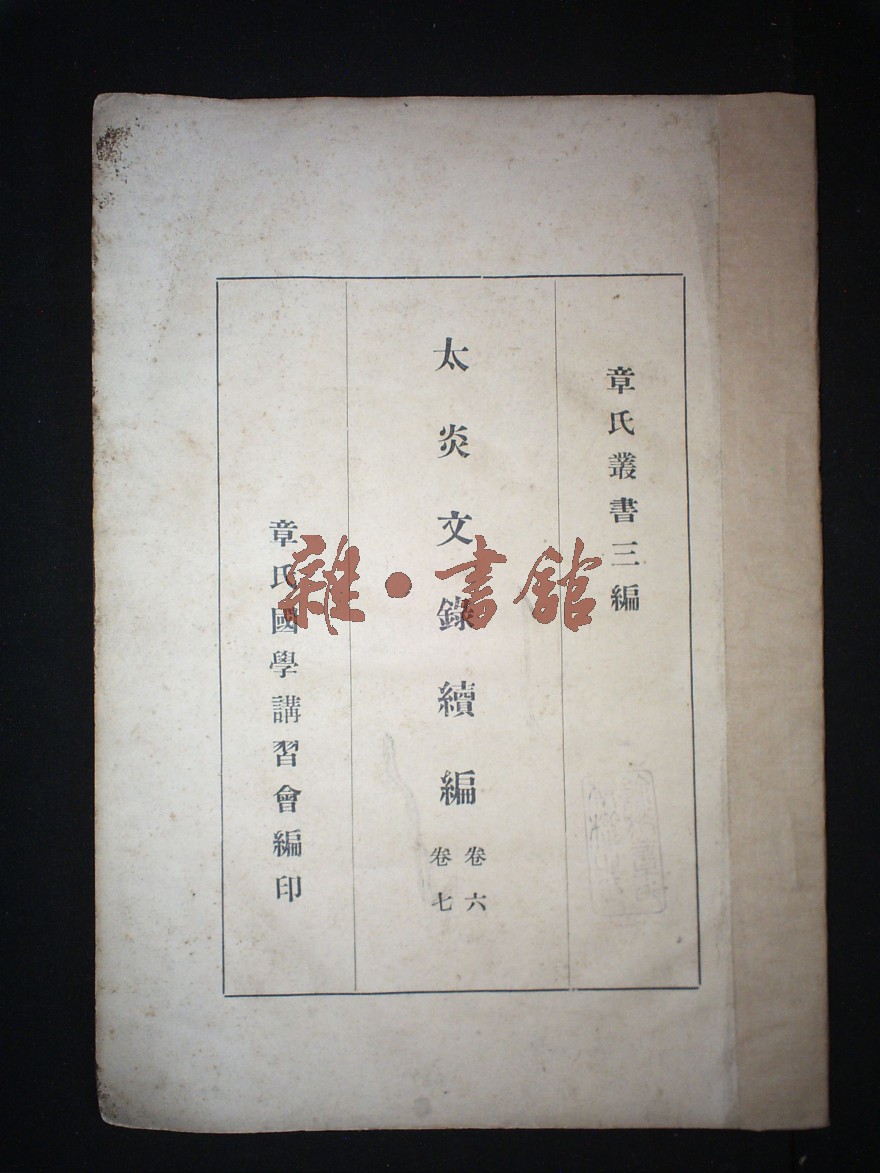 章氏叢書三編
太炎文錄續編
卷六
卷七
章氏國學講習會編印
雜·書館